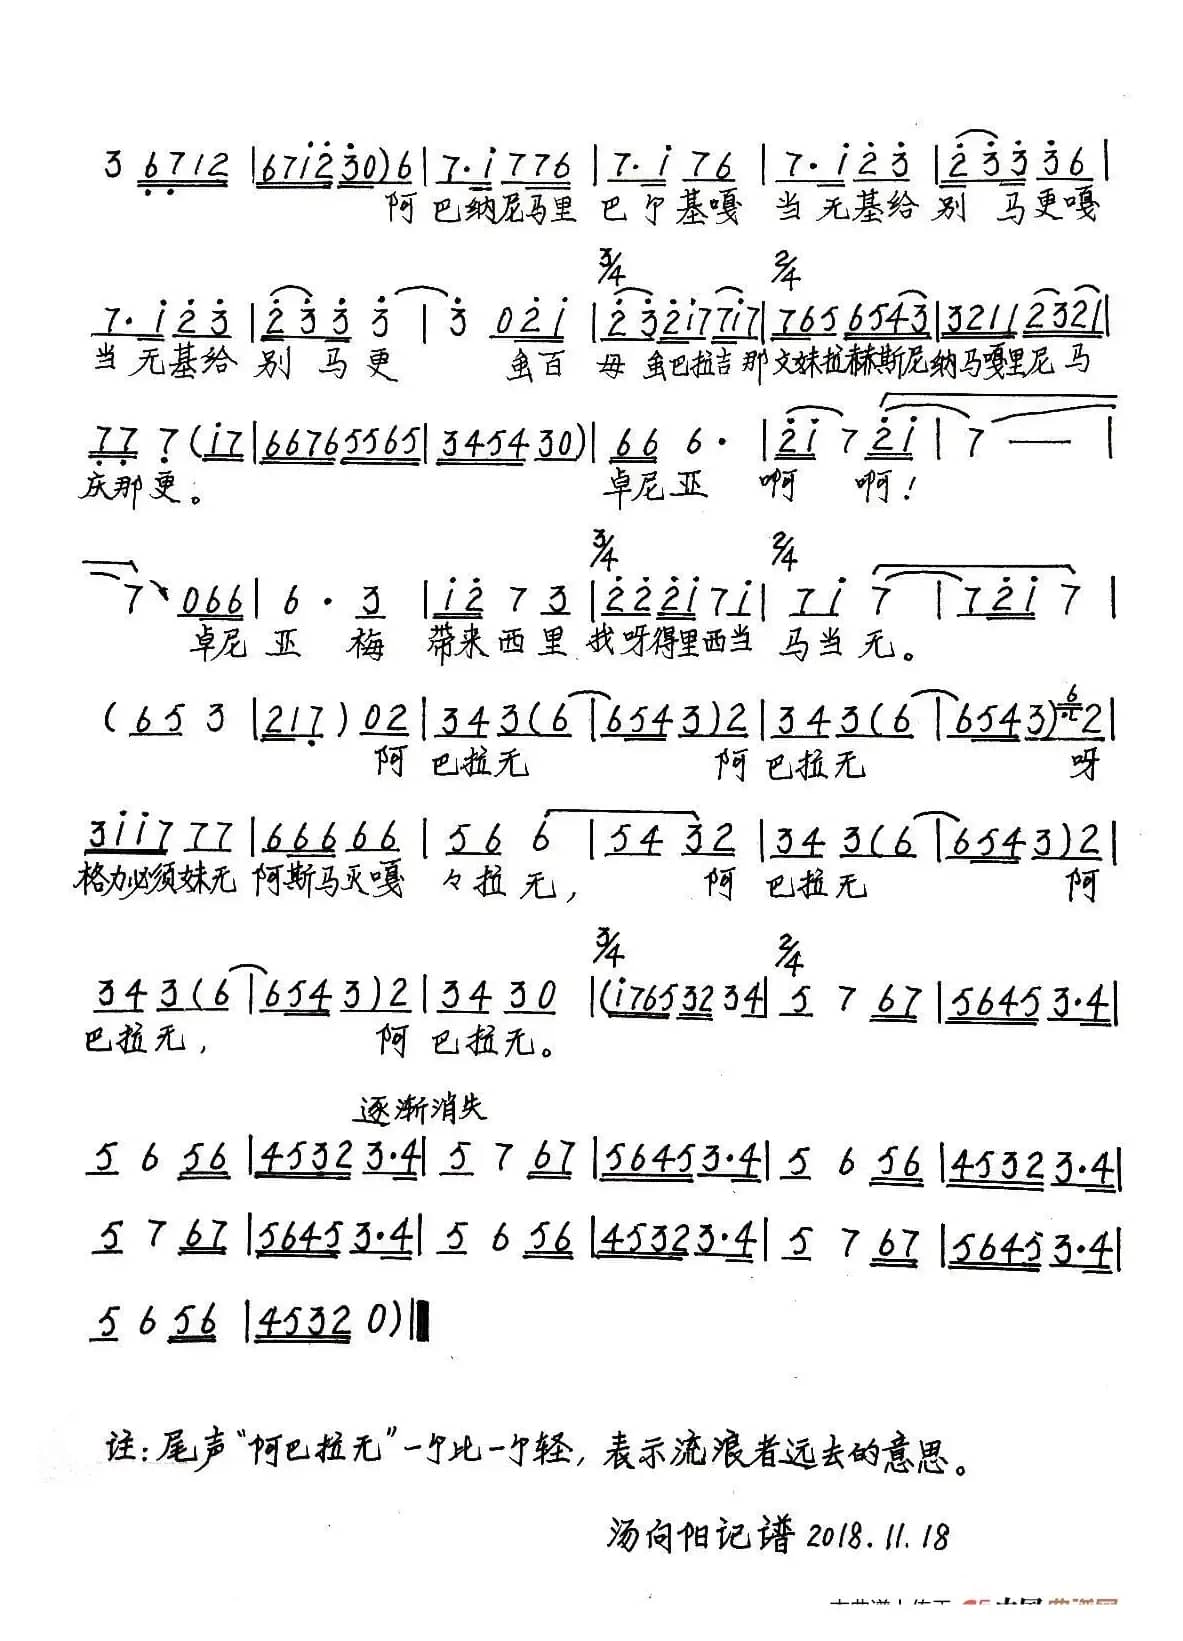 3 6712 |6712 30)6| 7·1 776 | 7·1 76 | 7·1 2 3 |23 3 36|
阿 巴纳尼马里 巴个基嘎 当无基给 别 马更嘎
3/4 2/4
7·1 2 3 |23 3 3 | 3 021 |23217717|765 6543|3211 2321|
当无基给 别 马更 虽百 母虽巴拉吉那文妹拉赫斯尼纳马嘎里尼马
77 7 (17|6676 5565|3454 30)| 66 6· |21 7 21 | 7 — |
庆那更。 卓尼亚 啊 啊！
3/4 2/4
7 066| 6 · 3 |12 7 3 |22217 1| 71 7 |721 7 |
卓尼亚 梅 带来西里 找呀得里西当 马当无。
(65 3 |217) 02|343(6|6543)2|343(6|6543)2|
阿 巴拉无 阿 巴拉无 呀
3117 77|666 66 |56 6 |54 32 |343(6|6543)2|
格力必须妹无 阿斯马灭嘎 々拉无， 阿 巴拉无 阿
3/4 2/4
343(6|6543)2|34 30 |(1765 32 34| 5 7 67 |5645 3·4|
巴拉无， 阿 巴拉无。
逐渐消失
5 6 56 |4532 3·4| 5 7 67 |5645 3·4| 5 6 56 |4532 3·4|
5 7 67 |5645 3·4| 5 6 56 |4532 3·4| 5 7 67 |5645 3·4|
5 6 56 |4532 0)|
注：尾声“阿巴拉无”一个比一个轻，表示流浪者远去的意思。
汤向阳记谱 2018.11.18